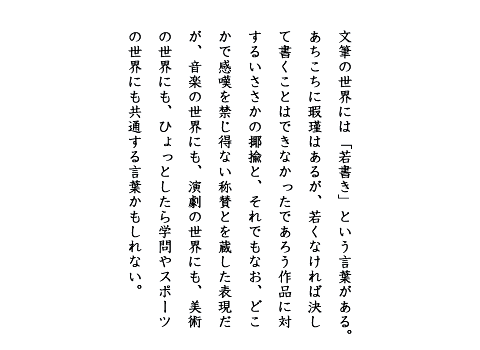 文筆の世界には「若書き」という言葉がある。
あちこちに瑕瑾はあるが、若くなければ決し
て書くことはできなかったであろう作品に対
するいささかの揶揄と、それでもなお、どこ
かで感嘆を禁じ得ない称賛とを蔵した表現だ
が、音楽の世界にも、演劇の世界にも、美術
の世界にも、ひょっとしたら学問やスポーツ
の世界にも共通する言葉かもしれない。